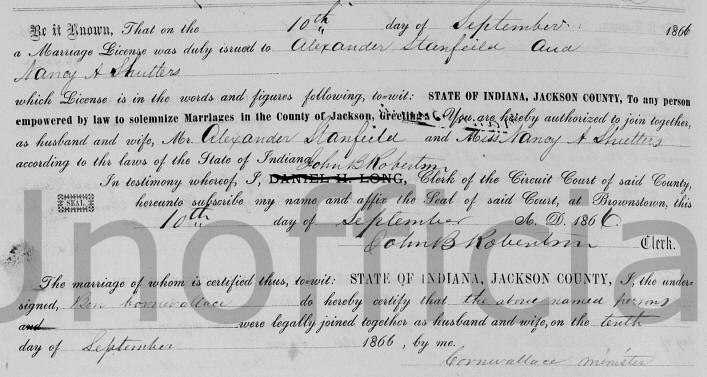 Be it Known, That on the 10th day of September 1866
a Marriage License was duly issued to Alexander Stanfeild and
Nancy A Shutters
which License is in the words and figures following, to-wit: STATE OF INDIANA, JACKSON COUNTY, To any person
empowered by law to solemnize Marriages in the County of Jackson, Greeting: You are hereby authorized to join together,
as husband and wife, Mr. Alexander Stanfield and Miss Nancy A Shutters
according to the laws of the State of Indiana.
John B Robertson
In testimony whereof, I, DANIEL H. LONG, Clerk of the Circuit Court of said County,
SEAL. hereunto subscribe my name and affix the Seal of said Court, at Brownstown, this
10th day of September A. D. 1866
John B Robertson Clerk.
Unofficia
The marriage of whom is certified thus, to-wit: STATE OF INDIANA, JACKSON COUNTY, I, the under-
signed, Ben Cornewallace do hereby certify that the above named persons
and were legally joined together as husband and wife, on the tenth
day of September 1866, by me.
Cornewallace minister